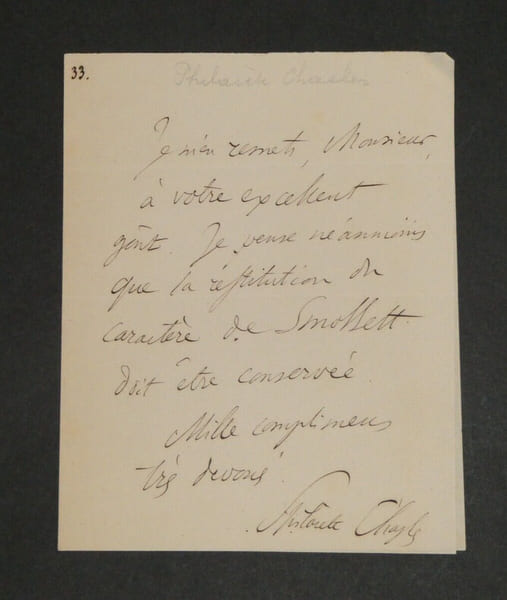 33.
Philarète Chasles
Je m'en remets, Monsieur,
à votre excellent
goût. Je pense néanmoins
que la restitution du
caractère de Smollett
doit être conservée.
Mille complimens
très dévoué.
Philarète Chasles